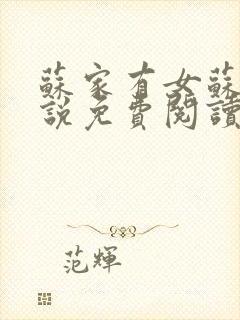 蘇家有女蘇
說免費閱讀
范輝